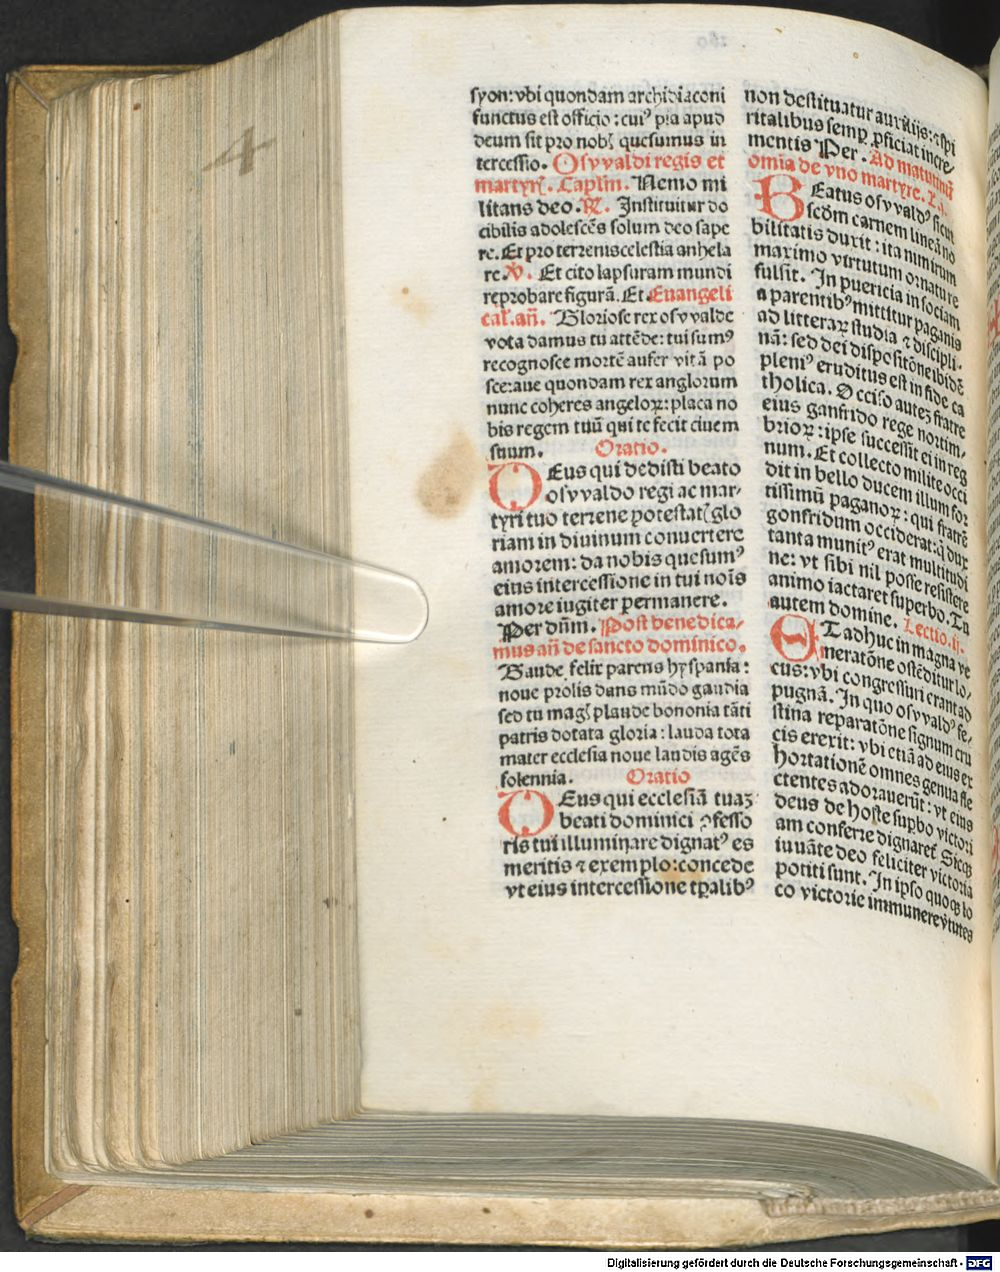 4
syon: vbi quondam archidiaconi
functus est officio: cuiꝰ pia apud
deum sit pro nobꝭ quesumus in
tercessio. Osvvaldi regis et
martyrꝭ. Caplm̄. Nemo mi
litans deo. ℟. Instituitur do
cibilis adolescēs solum deo sape
re. Et pro terrenis celestia anhela
re. ℣. Et cito lapsuram mundi
reprobare figurā. Et. Euangeli
cal. an̄. Gloriose rex osvvalde
vota damus tu attēde: tui sumꝰ
recognosce mortē aufer vitā po
sce: aue quondam rex anglorum
nunc coheres angeloꝝ: placa no
bis regem tuū qui te fecit ciuem
suum. Oratio.
DEus qui dedisti beato
osvvaldo regi ac mar-
tyri tuo terrene potestatꝭ glo
riam in diuinum conuertere
amorem: da nobis quesumꝰ
eius intercessione in tui nois̄
amore iugiter permanere.
Per dn̄m. Post benedica-
mus an̄ de sancto dominico.
Gaude felix parens hyspania:
noue prolis dans mūdo gaudia
sed tu magꝭ plaude bononia tāti
patris dotata gloria: lauda tota
mater ecclesia noue laudis agēs
solennia. Oratio
DEus qui ecclesiā tuaꝫ
beati dominici ꝯfesso
ris tui illuminare dignatꝰ es
meritis ⁊ exemplo: concede
vt eius intercessione tp̄alibꝰ
non destituatur auxilijs: ⁊ spi
ritalibus semꝑ ꝓficiat incre-
mentis Per. Ad matutinū
omīa de vno martyre. L. i.
BEatus osvvaldꝰ sicut
scd̄m carnem lineā no
bilitatis duxit: ita nimirum
maximo virtutum ornatu re
fulsit. In puericia in sociam
a parentibꝰ mittitur paganis
ad litteraꝝ studia ⁊ discipli-
nā: sed dei dispositōne ibidē
pleniꝰ eruditus est in fide ca
tholica. Occiso auteꝫ fratre
eius ganfrido rege nortim-
brioꝝ: ipse successit ei in reg
num. Et collecto milite occi
dit in bello ducem illum for
tissimū paganoꝝ: qui fratrē
gonfridum occiderat: q̄ dux
tanta munitꝰ erat multitudi
ne: vt sibi nil posse resistere
animo iactaret superbo. Tu
autem domine. Lectio. ij.
ET adhuc in magna ve
neratōne ostēditur lo-
cus: vbi congressuri erant ad
pugnā. In quo osvvaldꝰ fe-
stina reparatōne signum cru
cis erexit: vbi etiā ad eius ex
hortationē omnes genua fle
ctentes adorauerūt: vt eius
deus de hoste suꝑbo victori
am conferre dignaretꝭ. Sicqꝫ
iuuāte deo feliciter victoria
potiti sunt. In ipso quoqꝫ lo
co victorie immunere v̓tutes
Digitalisierung gefördert durch die Deutsche Forschungsgemeinschaft - DFG